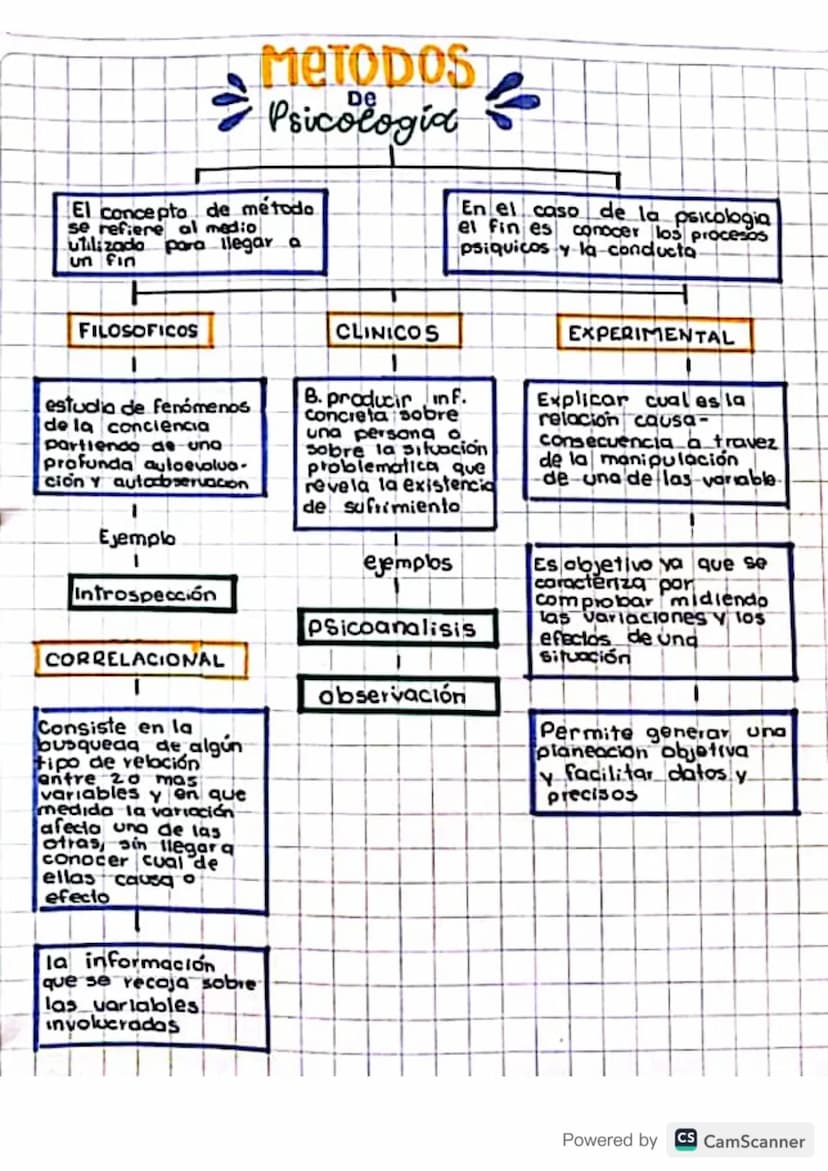 METODOS
DE
Psicología
El concepto de método
se refiene al medio
utilizado para llegar a
un fin
En el caso de la psicologia
el fin es conocer los procesos
psiquicos y la conducta
FILOSOFICOS
CLINICOS
EXPERIMENTAL
estudia de fenómenos
de la conciencia
partiendo de una
profunda autoevalua-
ción y autobservación
Ejemplo
Introspección
B. producir inf.
concreta sobre
una persona o
sobre la situación
problemática que
revela la existencia
de sufrimiento
ejemplos
psicoanalisis
observación
Explicar cual es la
relación causa-
consecuencia a travez
de la manipulación
de una de las variable
Es objetivo ya que se
caracteriza por
comprobar midiendo
las variaciones y los
efectos de una
situación
Permite generar una
planeación objetiva
y facilitar datos y
precisos
CORRELACIONAL
Consiste en la
busqueda de algún
tipo de relación
entre 2 o mas
variables y en que
medida la variación
afecta una de las
otras, sin llegar a
conocer cual de
ellas causa o
efecto
la información
que se recoja sobre
las variables
involucradas
Powered by CS CamScanner